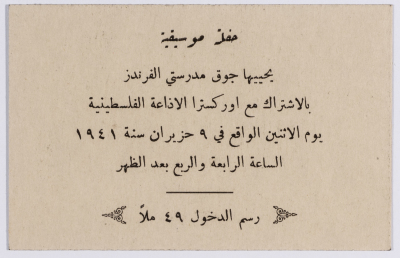 حفلة موسيقية
يحييها جوق مدرستي الفرندز
بالاشتراك مع اوركسترا الاذاعة الفلسطينية
يوم الاثنين الواقع في ٩ حزيران سنة ١٩٤١
الساعة الرابعة والربع بعد الظهر
رسم الدخول ٤٩ ملاً